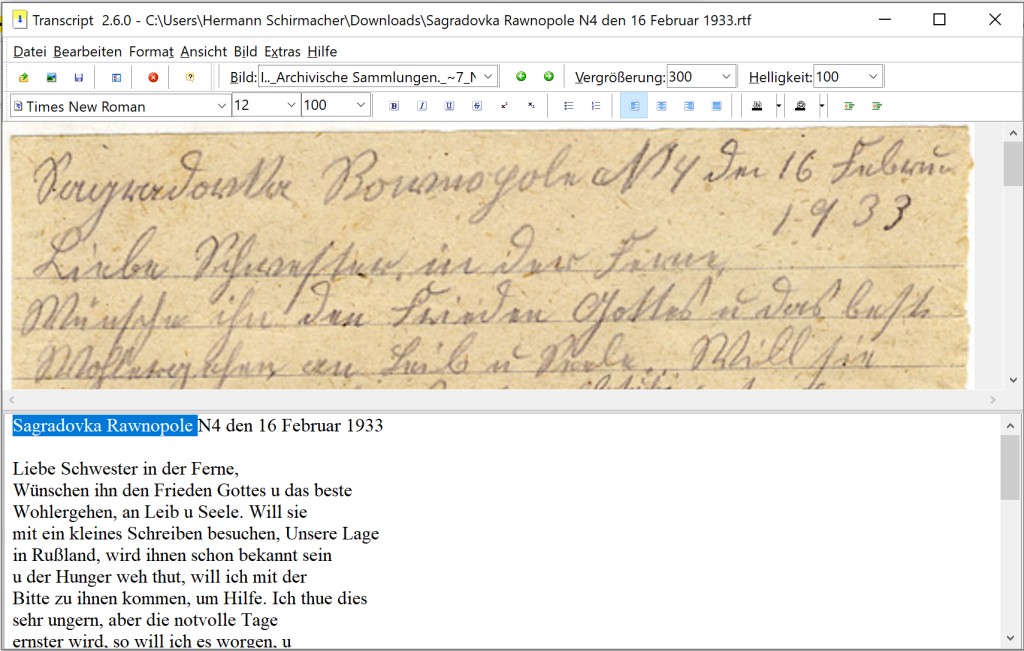 Transcript 2.6.0 - C:\Users\Hermann Schirmacher\Downloads\Sagradovka Rawnopole N4 den 16 Februar 1933.rtf
Datei Bearbeiten Format Ansicht Bild Extras Hilfe
Bild: I.._Archivische Sammlungen._~7_N Vergrößerung: 300 Helligkeit: 100
Times New Roman 12 100
Sagradovka Rownopole N4 den 16 Februar
1933
Liebe Schwester, in der Ferne,
Wünsche ihn den Frieden Gottes u das beste
Wohlergehen, an Leib u Seele. Will sie
Sagradovka Rawnopole N4 den 16 Februar 1933
Liebe Schwester in der Ferne,
Wünschen ihn den Frieden Gottes u das beste
Wohlergehen, an Leib u Seele. Will sie
mit ein kleines Schreiben besuchen, Unsere Lage
in Rußland, wird ihnen schon bekannt sein
u der Hunger weh thut, will ich mit der
Bitte zu ihnen kommen, um Hilfe. Ich thue dies
sehr ungern, aber die notvolle Tage
ernster wird, so will ich es worgen, u